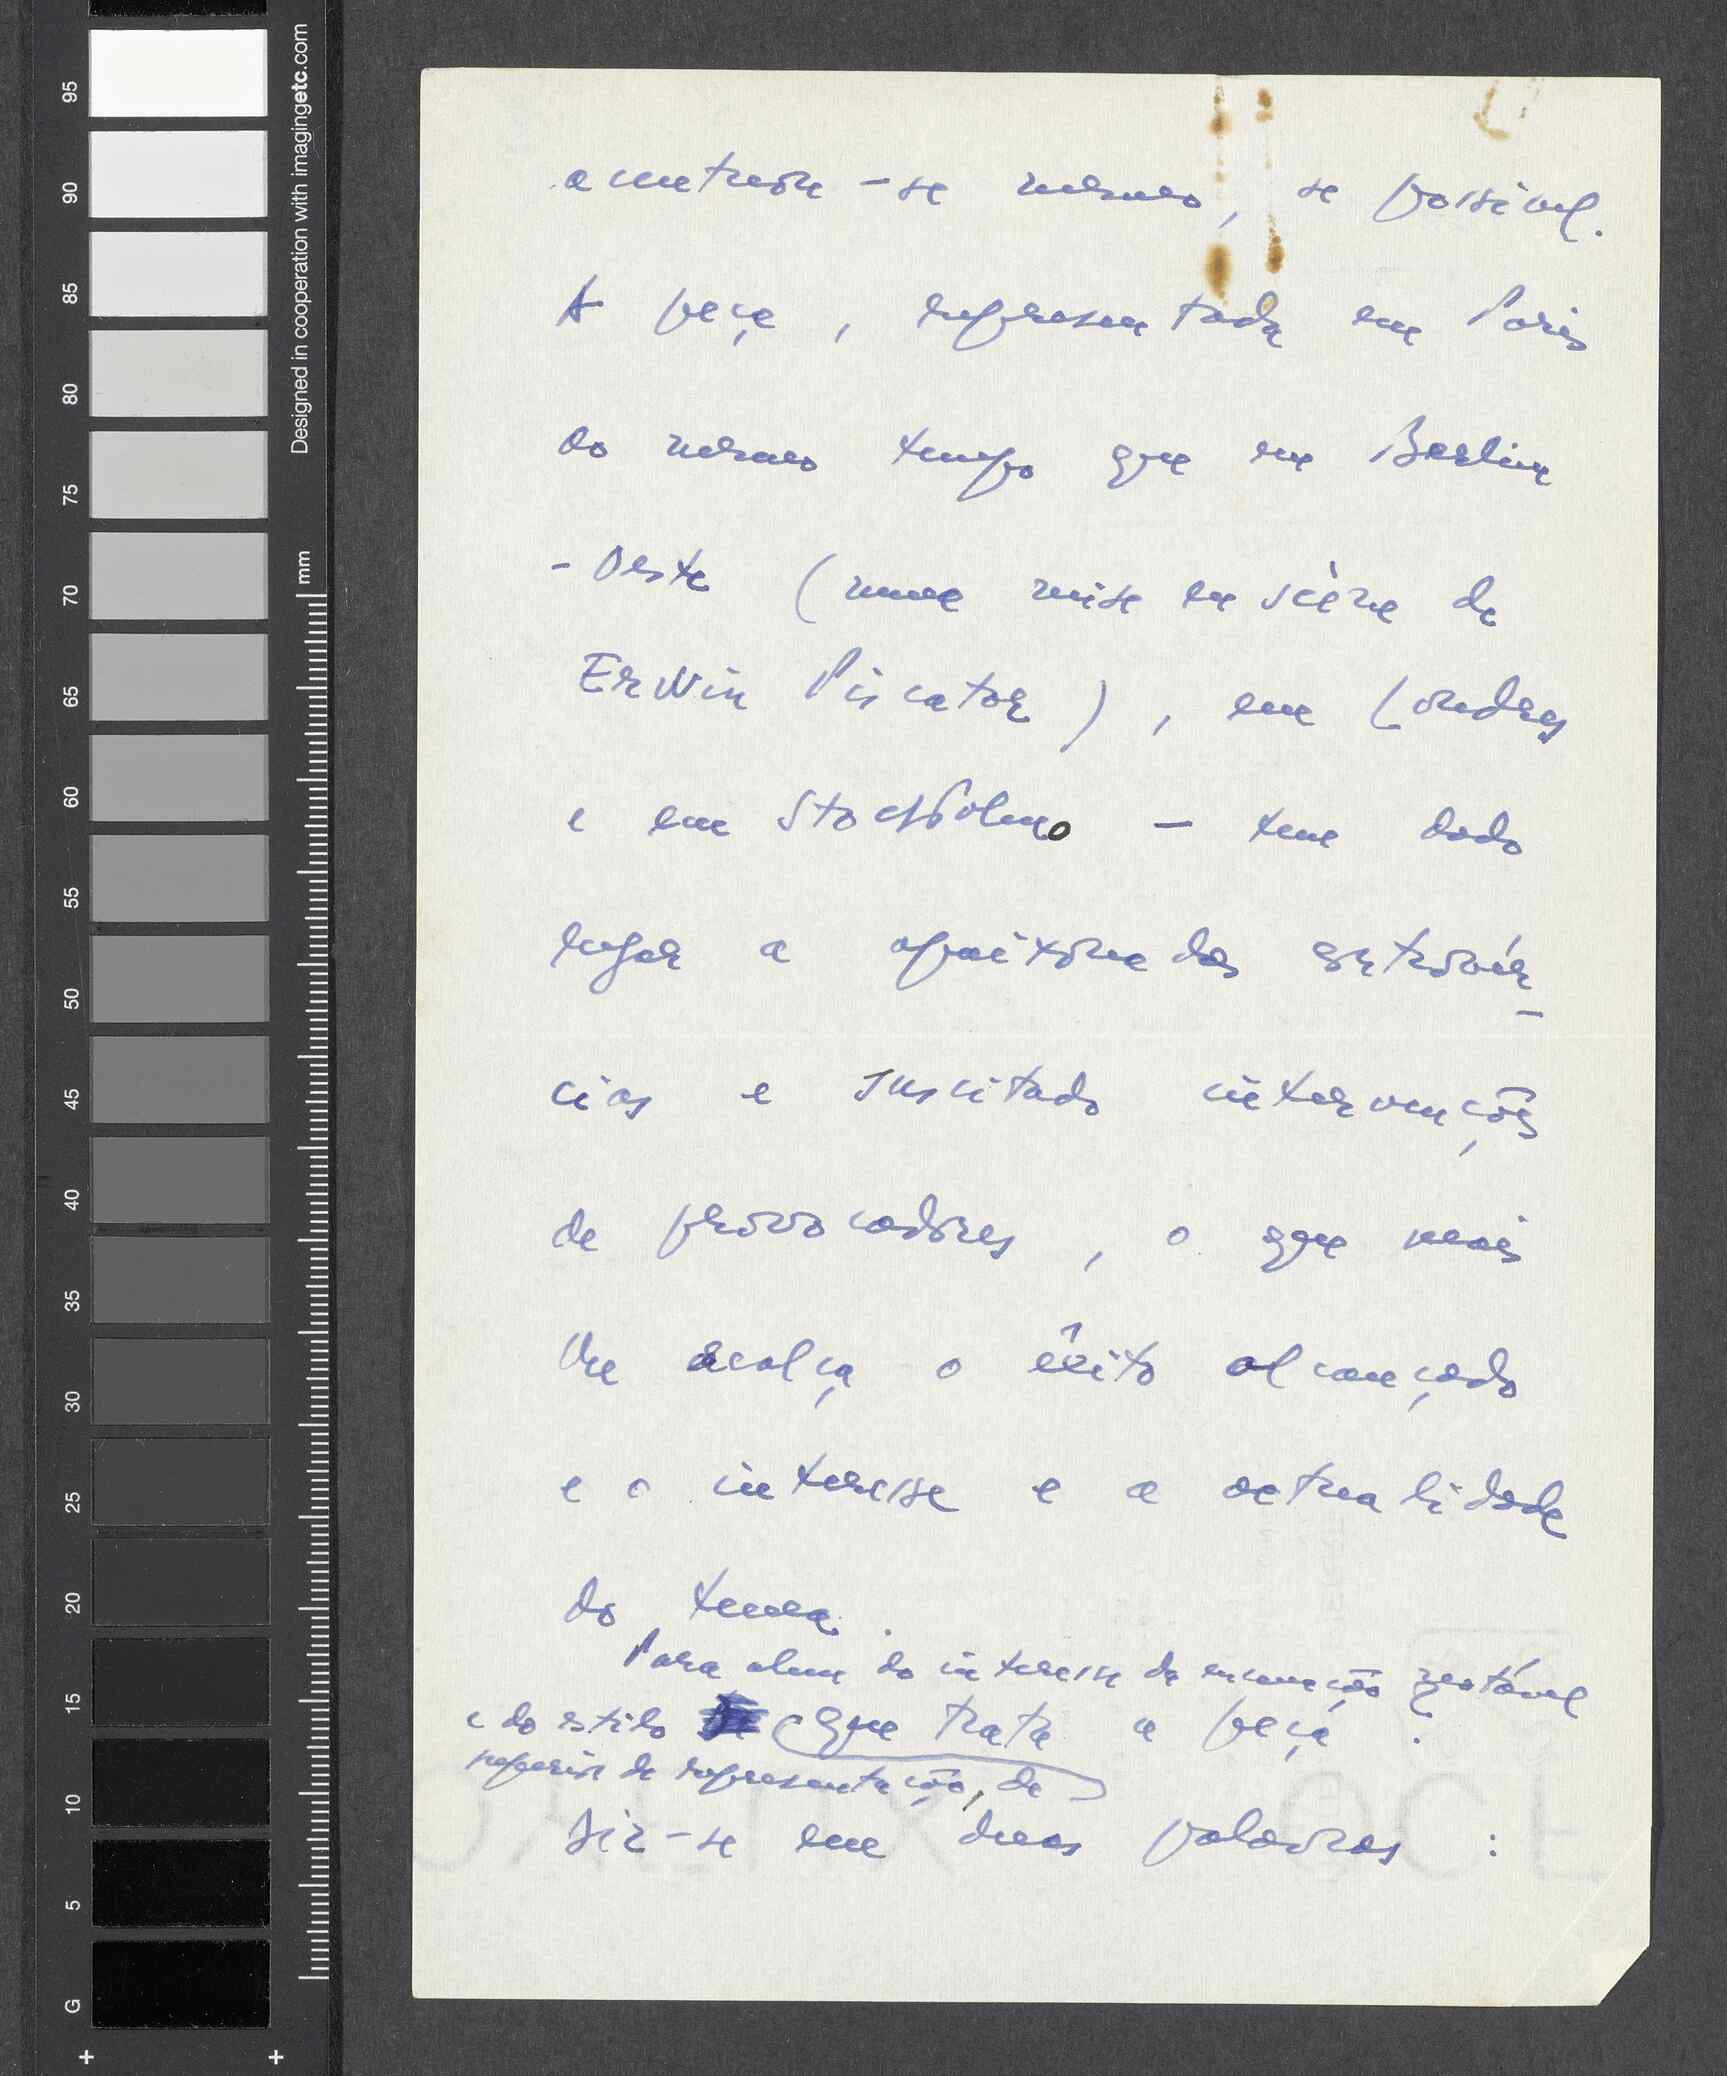 amotinar-se mesmo, se possível.
A peça, representada em Paris
ao mesmo tempo que em Berlim
-Oeste (numa mise en scène de
Erwin Piscator), em Londres
e em Stockholmo — tem dado
lugar a controvér-
cias e suscitado intervenções
de provocadores, o que mais
lhe realça o êxito alcançado
e o interesse e a actualidade
do tema.
Para alem do interesse da encenação notável
e do estilo que trata a peça.
de representação, de
Diz-se em duas palavras :
95
90
85
80
75
70
65
60
55
50
45
40
35
30
25
20
15
10
5
G
Designed in cooperation with imagingetc.com
mm